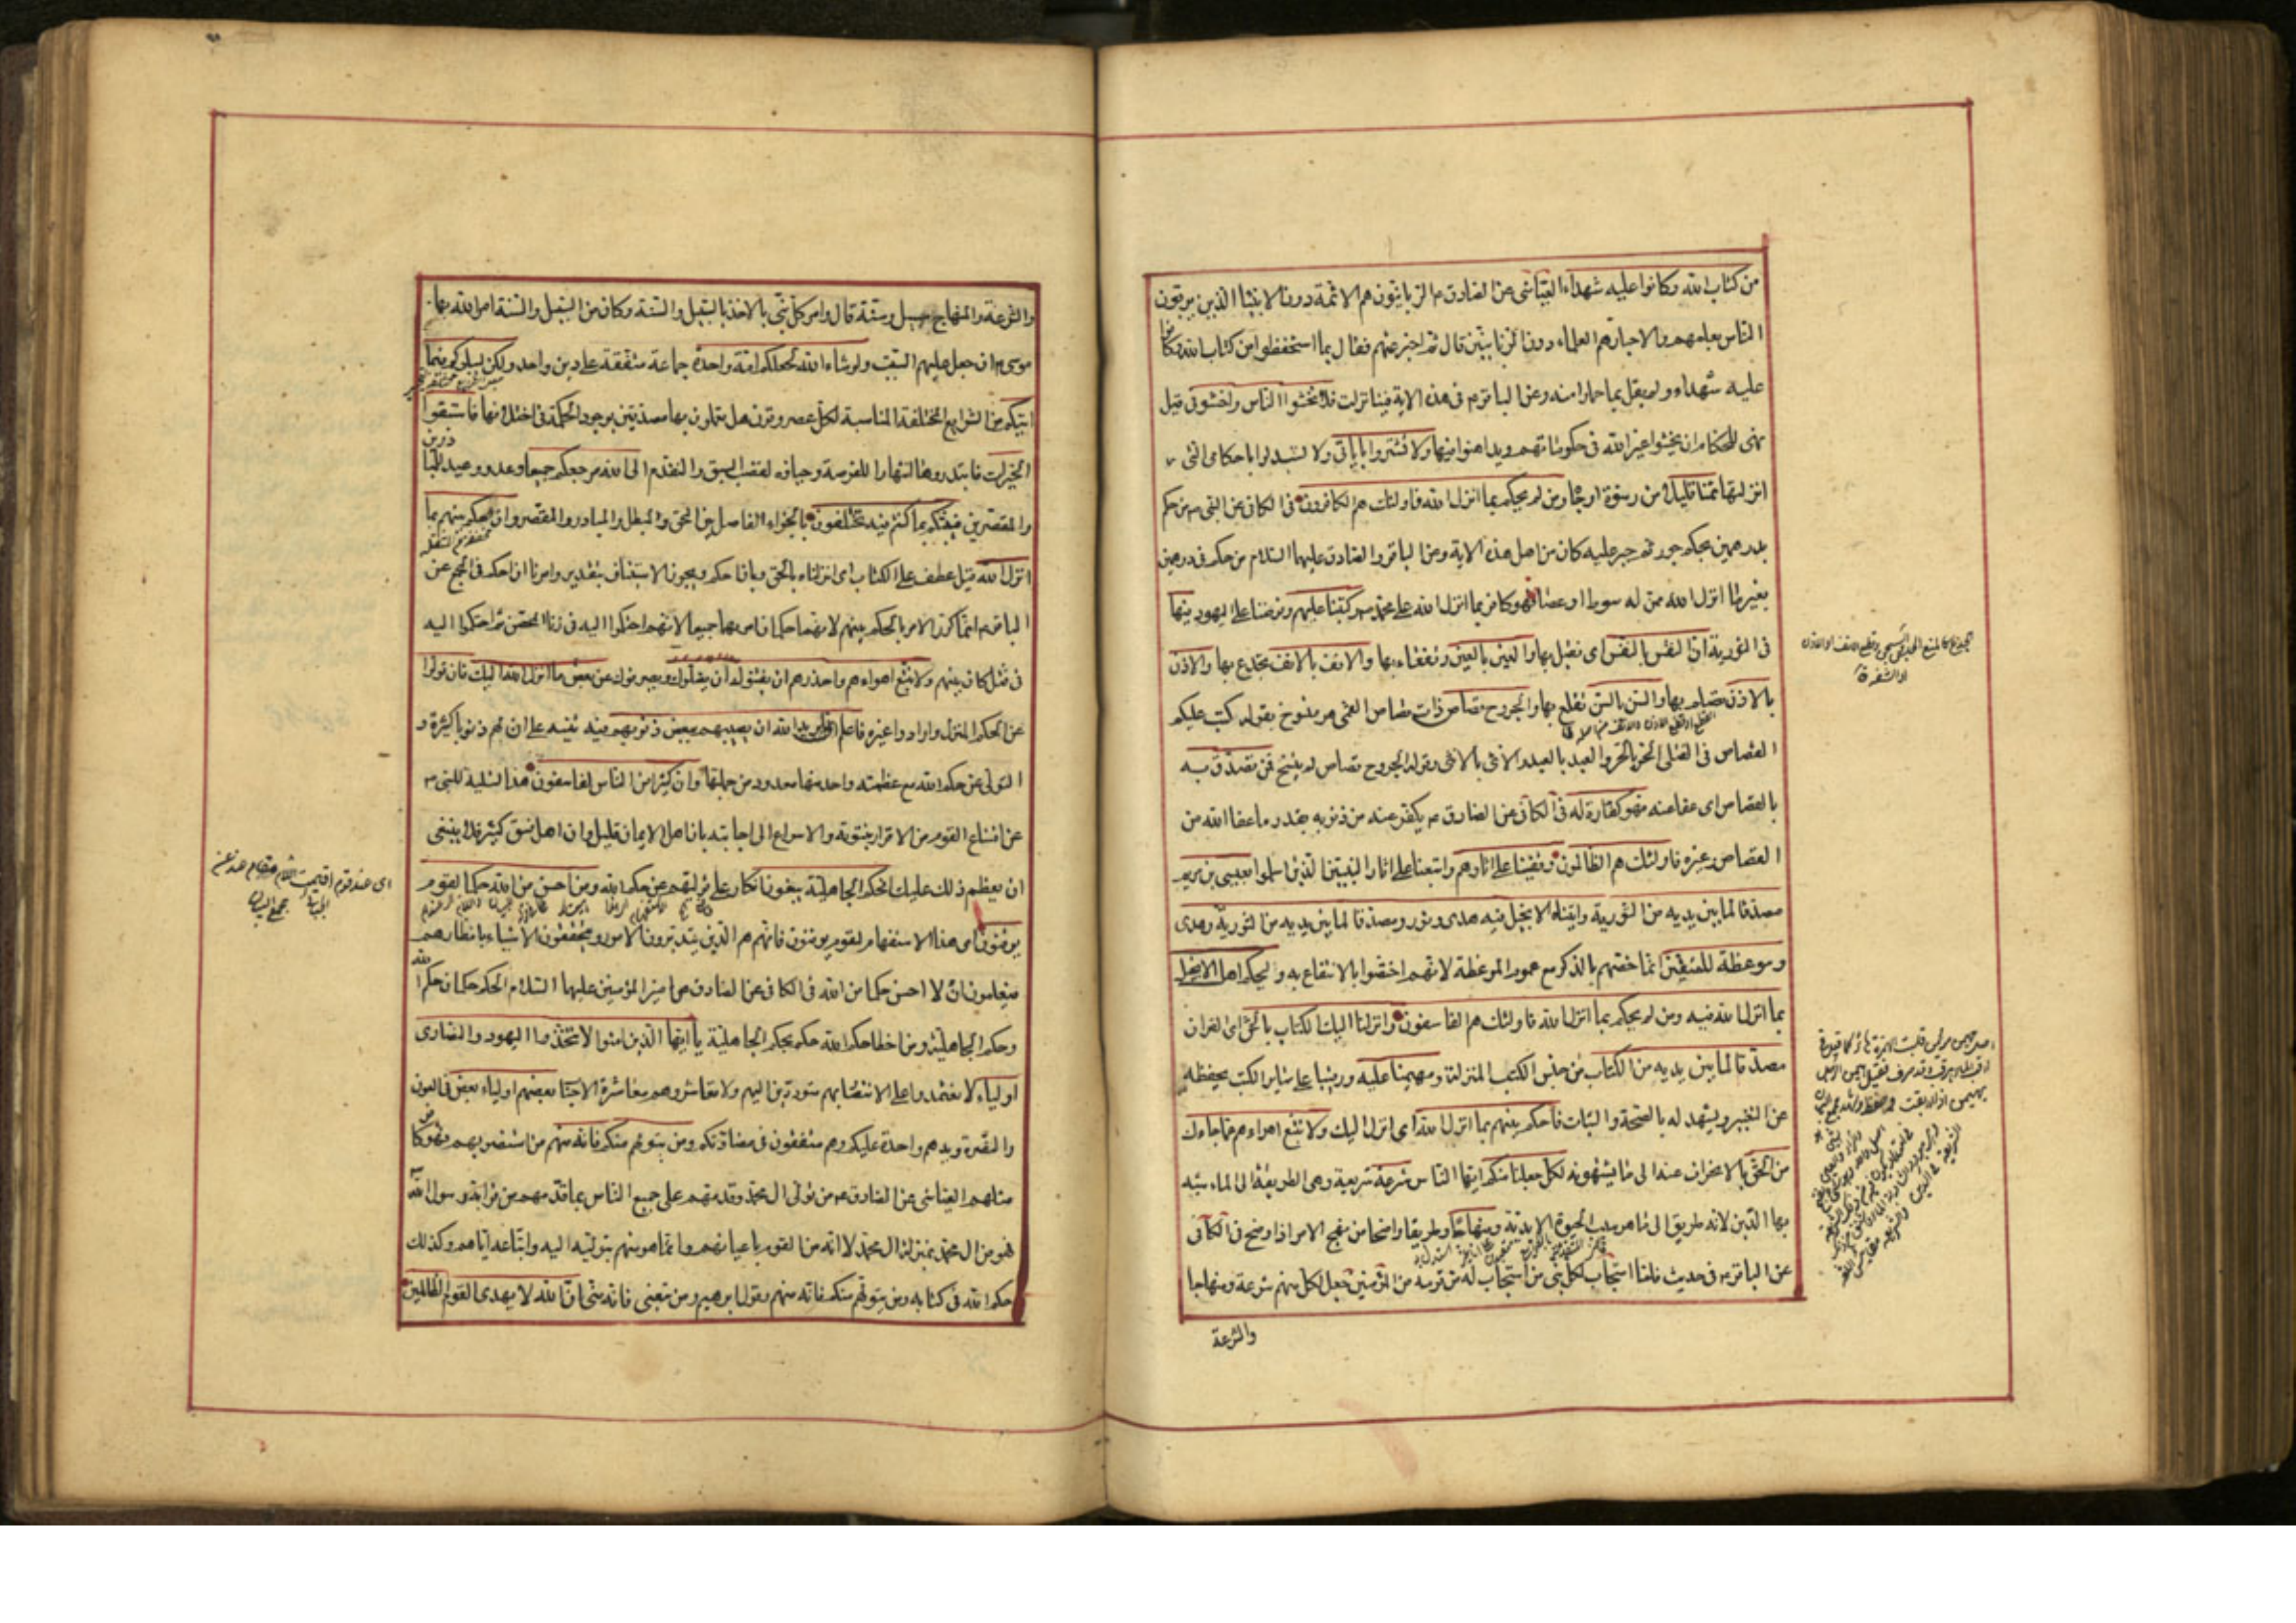 من كتاب الله وكانوا عليه شهداء العياشى عن الصادق ع الربانيون هم الائمة دون الانبيا الذين يربون
الناس بعلمهم والاحبار هم العلماء دون الربانيين قال ثم اخبر عنهم فقال بما استحفظوا من كتاب الله وكانوا
عليه شهداء ولم يقل بما حملوا منه وعن الباقر ع فى هذه الاية فينا نزلت فلا تخشوا الناس واخشونى قيل
نهى للحكام ان يخشوا غير الله فى حكوماتهم ويداهنوا فيها ولا تشتروا باياتى ولا تستبدلوا باحكامى التى
انزلتها ثمنا قليلا من رشوة او جاه ومن لم يحكم بما انزل الله فاولئك هم الكافرون فى الكافى عن النبى ص من حكم
بدرهمين بحكم جور ثم جبر عليه كان من اهل هذه الاية وعن الباقر والصادق عليهما السلام من حكم فى درهمين
بغير ما انزل الله ممن له سوط او عصا فهو كافر بما انزل الله على محمد ص وكتبنا عليهم وفرضنا على اليهود فيها
فى التورية ان النفس بالنفس اى تقتل بها والعين بالعين وتفقاء بها والانف بالانف يجدع بها والاذن
بالاذن تصلم بها والسن بالسن تقلع بها والجروح قصاص ذات قصاص القمى هو منسوخ بقوله كتب عليكم
القصاص فى القتلى الحر بالحر والعبد بالعبد والانثى بالانثى وقوله الجروح قصاص لم ينسخ فمن تصدق به
بالقصاص اى عفا عنه فهو كفارة له فى الكافى عن الصادق ع يكفر عنه من ذنوبه بقدر ما عفا الله من
القصاص وغيره فاولئك هم الظالمون وقفينا على اثارهم واتبعنا على اثار النبيين الذين اسلموا بعيسى بن مريم
مصدقا لما بين يديه من التورية واتيناه الانجيل فيه هدى ونور ومصدقا لما بين يديه من التورية وهدى
وموعظة للمتقين انما خصهم بالذكر مع عموم الموعظة لانهم اختصوا بالانتفاع به وليحكم اهل الانجيل
بما انزل الله فيه ومن لم يحكم بما انزل الله فاولئك هم الفاسقون وانزلنا اليك الكتاب بالحق اى القران
مصدقا لما بين يديه من الكتاب من جنس الكتب المنزلة ومهيمنا عليه ورقيبا على سائر الكتب يحفظه
عن التغيير ويشهد له بالصحة والثبات فاحكم بينهم بما انزل الله اى انزل اليك ولا تتبع اهواءهم عما جاءك
من الحق بالانحراف عنه الى ما يشتهونه لكل جعلنا منكم ايها الناس شرعة شريعة وهى الطريقة الى الماء شبه
بها الدين لانه طريق الى ما هو سبب الحيوة الابدية ومنهاجا وطريقا واضحا من نهج الامر اذا وضح فى الكافى
عن الباقر ع فى حديث فلما استجاب لكل نبى من استجاب له من قومه من المؤمنين جعل لكل منهم شرعة ومنهاجا
والشرعة
والشرعة والمنهاج سبيل وسنة قال وامر كل نبى بالاخذ بالسبيل والسنة وكان من السبيل والسنة امر الله بها
موسى ع ان جعل عليهم السبت ولو شاء الله لجعلكم امة واحدة جماعة متفقة على دين واحد ولكن ليبلوكم فيما
اتيكم من الشرايع المختلفة المناسبة لكل عصر وقرن هل تعملون بها مصدقين بوجود الحكمة فى اختلافها فاستبقوا
الخيرات فابتدروها انتهازا للفرصة وحيازة لفضل السبق والتقدم الى الله مرجعكم جميعا وعد ووعيد للمبادرين
والمقصرين فينبئكم بما كنتم فيه تختلفون بالجزاء الفاصل بين المحق والمبطل والمبادر والمقصر وان احكم بينهم بما
انزل الله قيل عطف على الكتاب اى انزلناه بالحق وبان احكم ويجوز الاستيناف بتقدير وامرنا ان احكم فى المجمع عن
الباقر ع انما كرر الامر بالحكم بينهم لانهما حكمان امر بهما جميعا لانهم احتكموا اليه فى زنا المحصن ثم احتكموا اليه
فى قتل كان بينهم ولا تتبع اهواءهم واحذرهم ان يفتنوك ان يضلوك ويصرفوك عن بعض ما انزل الله اليك فان تولوا
عن الحكم المنزل وارادوا غيره فاعلم انما يريد الله ان يصيبهم ببعض ذنوبهم فيه تنبيه على ان لهم ذنوبا كثيرة و
التولى عن حكم الله مع عظمته واحد منها معدود من جملتها وان كثيرا من الناس لفاسقون هذا تسلية للنبى ص
عن امتناع القوم من الاقرار بنبوته والاسراع الى اجابته بان اهل الايمان قليل وان اهل الفسق كثير فلا ينبغى
ان يعظم ذلك عليك افحكم الجاهلية يبغون انكار على توليهم عن حكم الله ومن احسن من الله حكما لقوم
يوقنون اى هذا الاستفهام لقوم يوقنون فانهم هم الذين يتدبرون الامور ويحققون الاشياء بانظارهم
فيعلمون ان لا احسن حكما من الله فى الكافى عن الصادق عن امير المؤمنين عليهما السلام الحكم حكمان حكم الله
وحكم الجاهلية ومن اخطا حكم الله حكم بحكم الجاهلية يا ايها الذين امنوا لا تتخذوا اليهود والنصارى
اولياء لا تعتمدوا على الانتصار بهم متوددين اليهم ولا تعاشروهم معاشرة الاحباب بعضهم اولياء بعض فى العون
والنصرة ويدهم واحدة عليكم وهم متفقون فى مضادتكم ومن يتولهم منكم فانه منهم من استنصر بهم فهو كافر
مثلهم العياشى عن الصادق ع من تولى ال محمد وقدمهم على جميع الناس بما قدمهم من قرابة رسول الله
فهو من ال محمد بمنزلة ال محمد لا انه من القوم باعيانهم وانما هو منهم بتوليه اليهم واتباعه اياهم وكذلك
حكم الله فى كتابه ومن يتولهم منكم فانه منهم وقول ابرهيم ومن تبعنى فانه منى ان الله لا يهدى القوم الظالمين